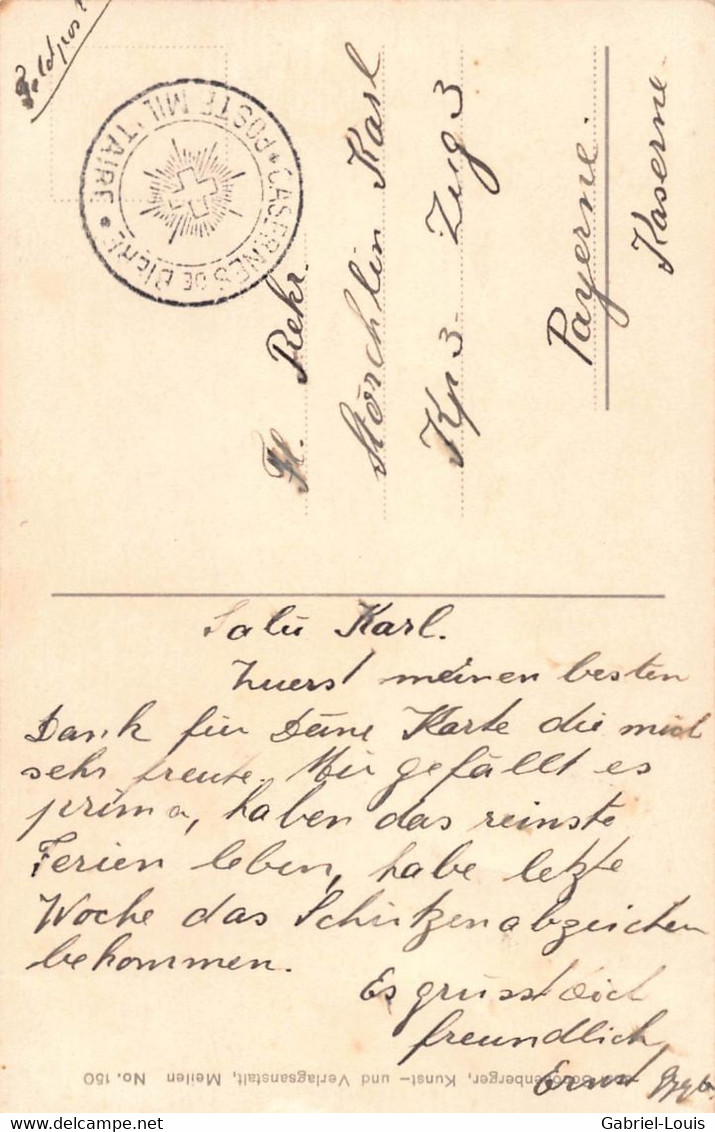 Feldpost
* POSTE MILITAIRE *
CASERNES DE BIÈRE
Fl. Rekr.
Störchlin Karl
Kp 3 - Zug 3
Payerne.
Kaserne
Salü Karl.
Zuerst meinen besten
Dank für Deine Karte die mich
sehr freute. Mir gefällt es
prima, haben das reinste
Ferien leben, habe letzte
Woche das Schützenabzeichen
bekommen.
Es grüsst Dich
freundlich
Ernst
Kunst- und Verlagsanstalt, Meilen No. 150
delcampe.net
Gabriel-Louis